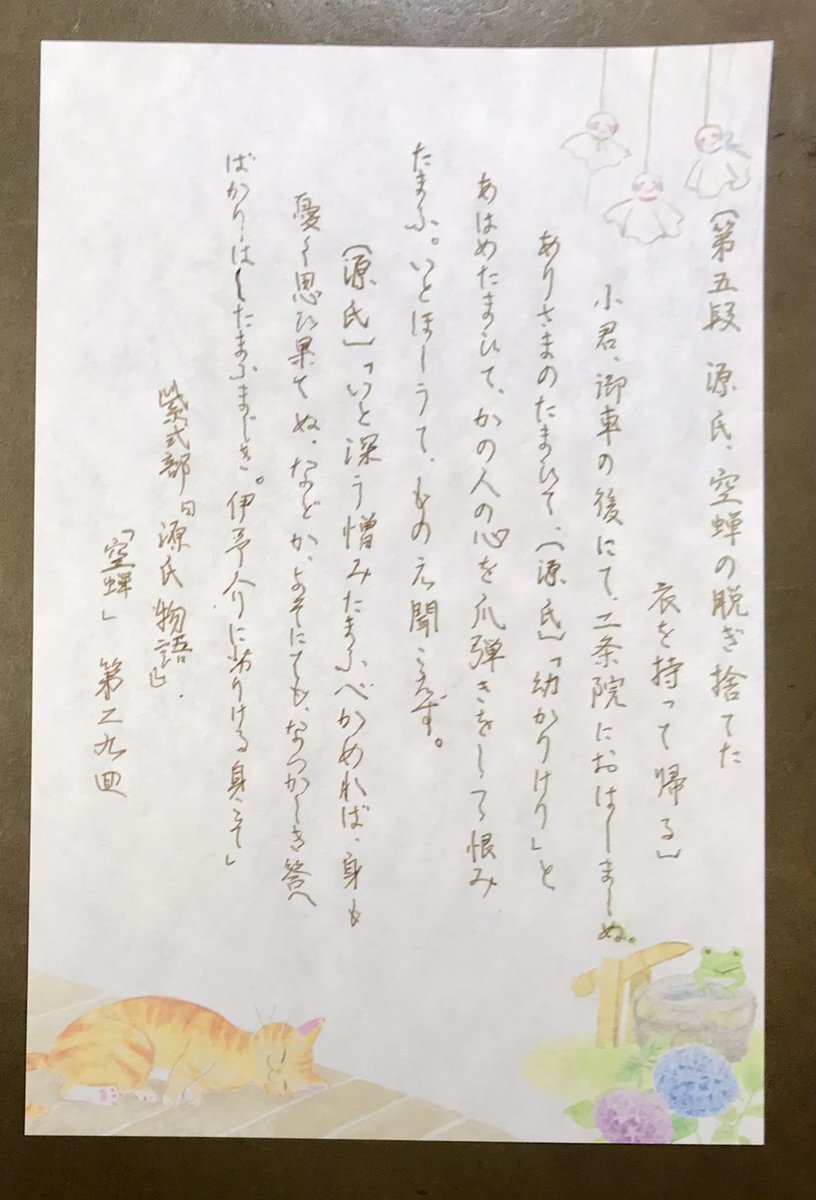 〔第五段 源氏、空蝉の脱ぎ捨てた
衣を持って帰る〕
小君、御車の後にて、二条院におはしましぬ。
ありさまのたまひて、〔源氏〕「幼かりけり」と
あはめたまひて、かの人の心を爪弾きをしつつ恨み
たまふ。いとほしうて、ものえ聞こえず。
〔源氏〕「いと深う憎みたまふべかめれば、身も
憂く思ひ果てぬ。などか、よそにても、なつかしき答へ
ばかりはしたまふまじき。伊予介に劣りける身こそ」
紫式部『源氏物語』
「空蝉」 第二九回